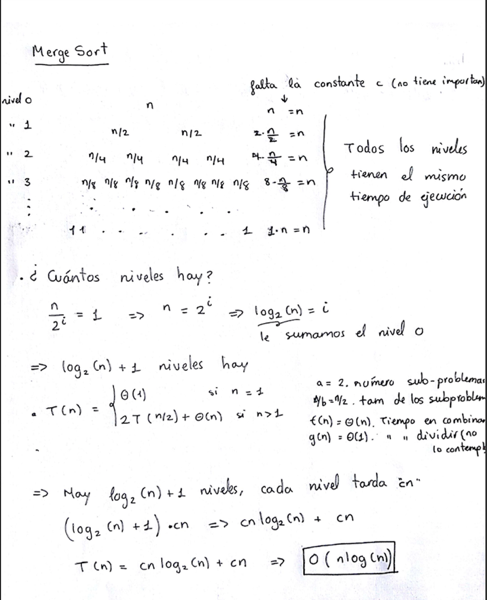 Merge Sort
falta la constante c (no tiene importan
nivel 0 n n = n
" 1 n/2 n/2 2·n/2 = n
" 2 n/4 n/4 n/4 n/4 4·n/4 = n
" 3 n/8 n/8 n/8 n/8 n/8 n/8 n/8 n/8 8·n/8 = n
11 . . . . . . . 1 1·n = n
Todos los niveles
tienen el mismo
tiempo de ejecución
. ¿Cuántos niveles hay?
n/2^i = 1 => n = 2^i => log₂(n) = i
le sumamos el nivel 0
=> log₂(n) + 1 niveles hay
. T(n) = { Θ(1) si n = 1
2T(n/2) + Θ(n) si n > 1
a = 2. número sub-problema
n/b = n/2. tam de los subproblem
f(n) = Θ(n). Tiempo en combinar
g(n) = Θ(1). " " dividir (no
lo contempl
=> Hay log₂(n) + 1 niveles, cada nivel tarda "cn"
(log₂(n) + 1) · cn => cn log₂(n) + cn
T(n) = cn log₂(n) + cn => O(n log(n))